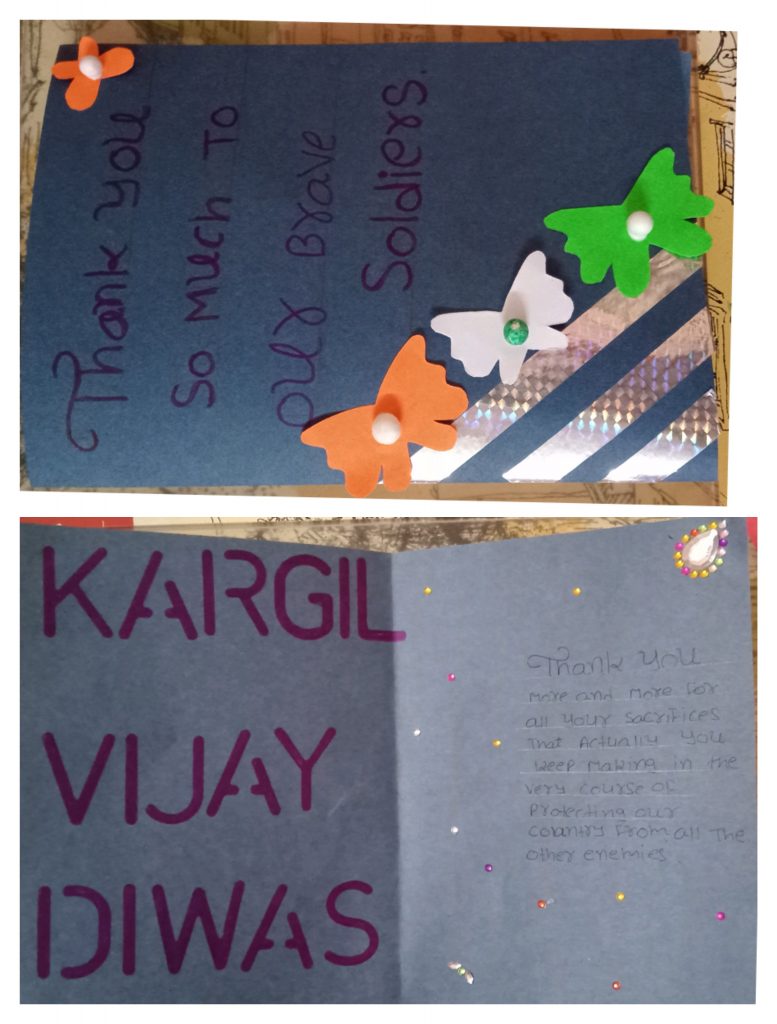 Thank you
So Much To
our Brave
Soldiers.
KARGIL
VIJAY
DIWAS
Thank you
more and more for
all your sacrifices
that Actually you
keep making in the
very course of
protecting our
country from all the
other enemies.